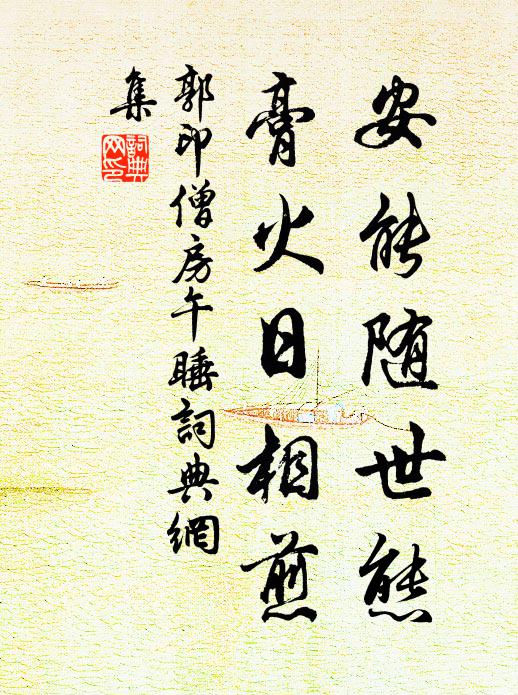 安能随世態
膏火日相煎
郭印僧房午睡詞典網
集
詞典
网印